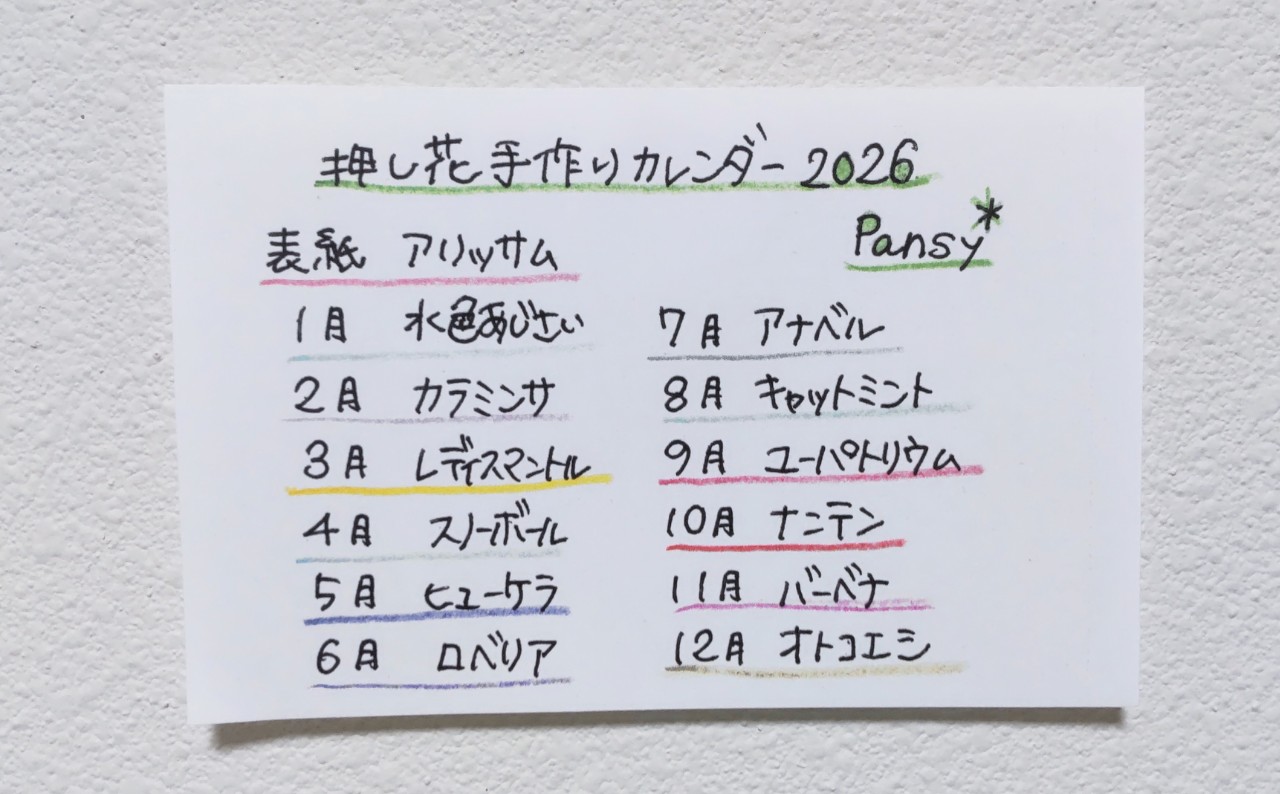 押し花手作りカレンダー2026
Pansy*
表紙 アリッサム
1月 水色あじさい
2月 カラミンサ
3月 レディスマントル
4月 スノーボール
5月 ヒューケラ
6月 ロベリア
7月 アナベル
8月 キャットミント
9月 ユーパトリウム
10月 ナンテン
11月 バーベナ
12月 オトコエシ